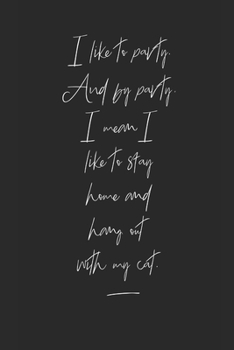 I like to party.
And by party.
I mean I
like to stay
home and
hang out
with my cat.